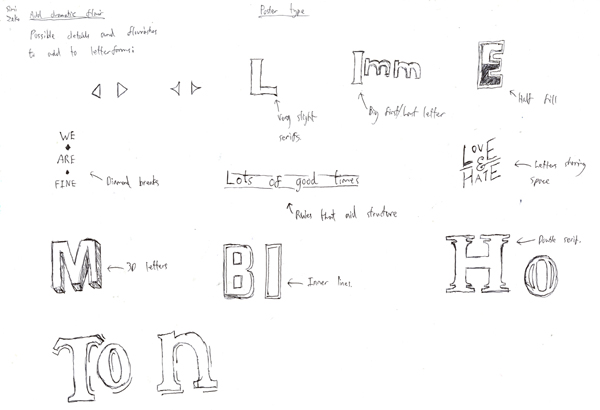 Add dramatic flair
Poster type
Possible details and flourishes
to add to letterforms:
L
Very slight
serifs.
Imm
Big first/last letter
E
Half fill
WE
ARE
FINE
Diamond breaks
Lots of good times
Rules that add structure
LOVE
&
HATE
Letters sharing
space
M
3D letters
BI
Inner lines.
Ho
Double serif.
To n